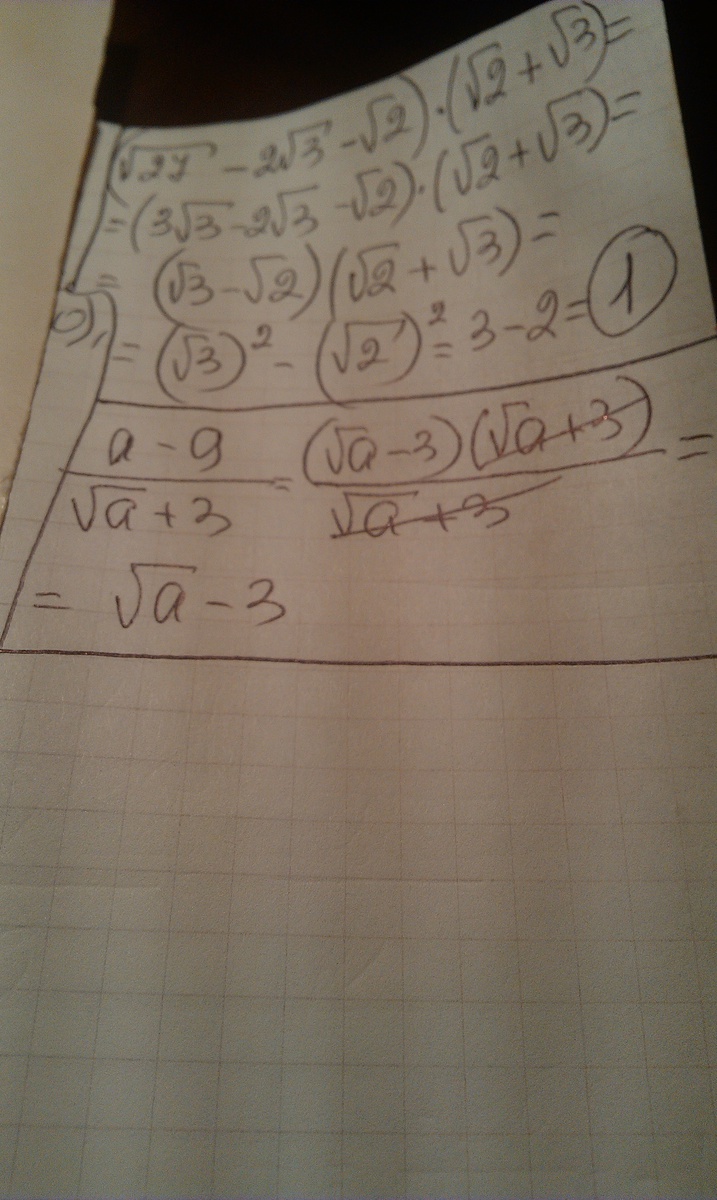 (√27 - 2√3 - √2)·(√2 + √3) =
= (3√3 - 2√3 - √2)·(√2 + √3) =
= (√3 - √2)(√2 + √3) =
= (√3)² - (√2)² = 3 - 2 = 1
(a - 9)/(√a + 3) = ((√a - 3)(√a + 3))/(√a + 3) =
= √a - 3